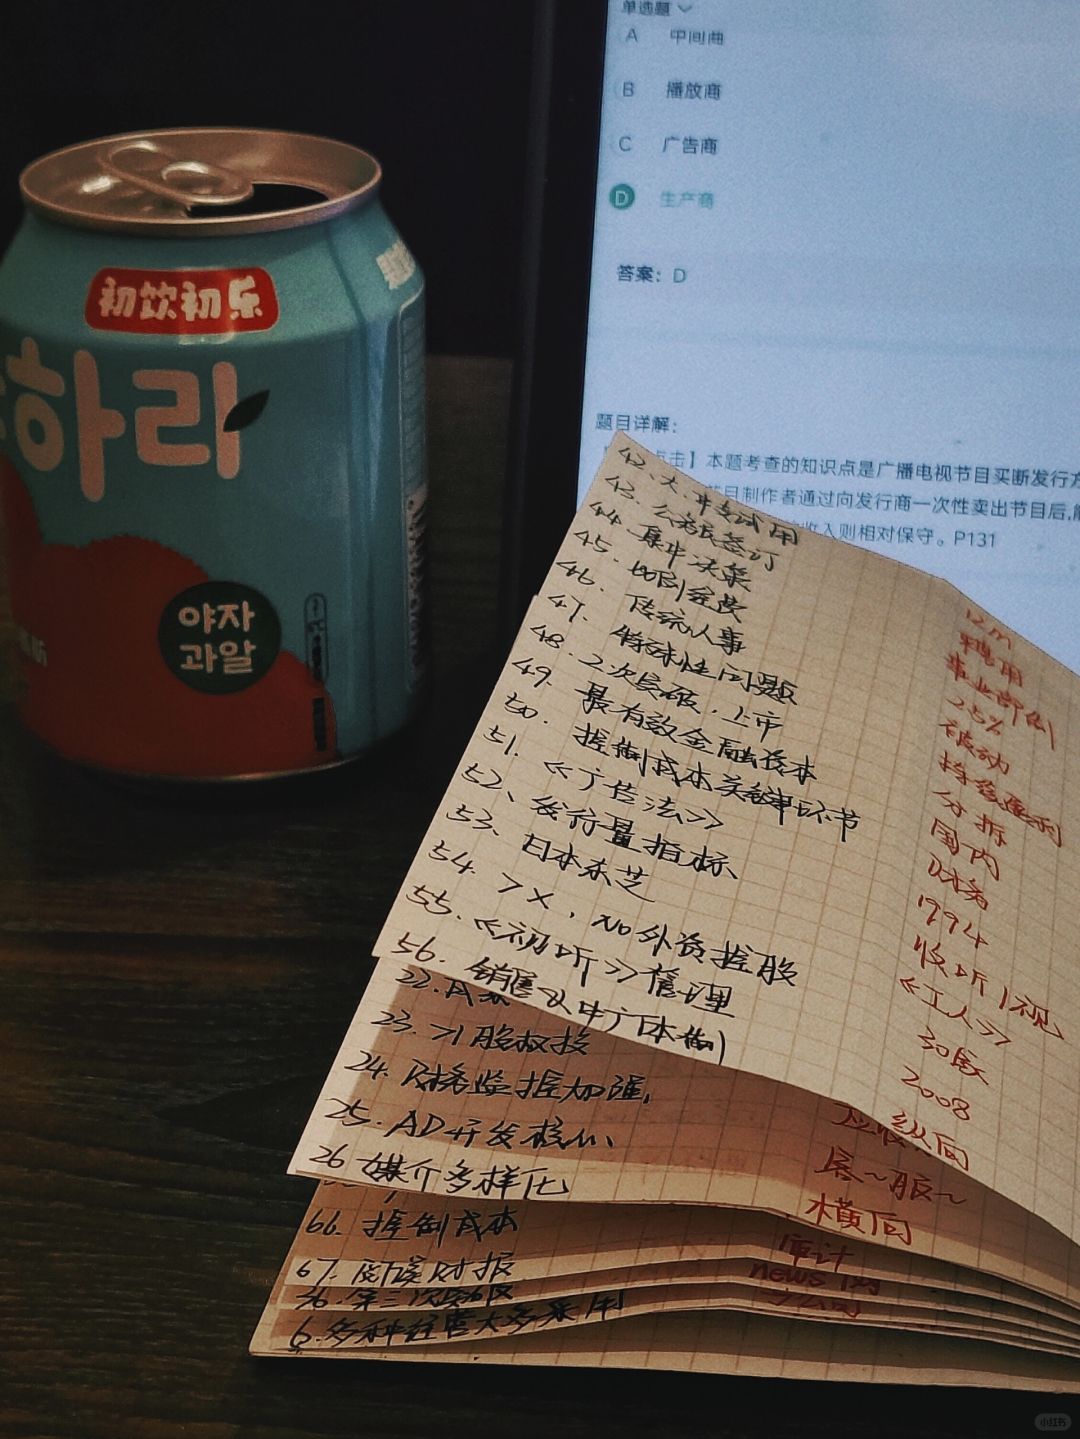 初饮初乐
하라
야자
과알
单选题
A 中间商
B 播放商
C 广告商
D 生产商
答案：D
题目详解：
点击】本题考查的知识点是广播电视节目买断发行方
节目制作者通过向发行商一次性卖出节目后,能
收入则相对保守。P131
42、大、中专试用 12m
43. 公务员签订 聘用
44. 集中决策 事业部制
45. 切刮金费 25%
46. 传统人事 被动
47. 特殊性问题
48. 2次突破，上市 分拆
49. 最有效金融资本 国内
50. 控制成本关键环节 财务
51. 《广告法》 1994
52、发行量指标、 收听/视
53. 日本东芝 《工人》
54. >X，NO外资控股 30家
55. 《初听》管理 2008
56. 销售以中广体制 纵向
22.
23. >1股权投 展~服~
24. 财务监控加强, 横向
25. AD开发核心、
26 媒介多样化
66. 控制成本 审计
67. 阅读财报 news
36. 第三次突破 子公司
6. 多种经营大多采用
小红书